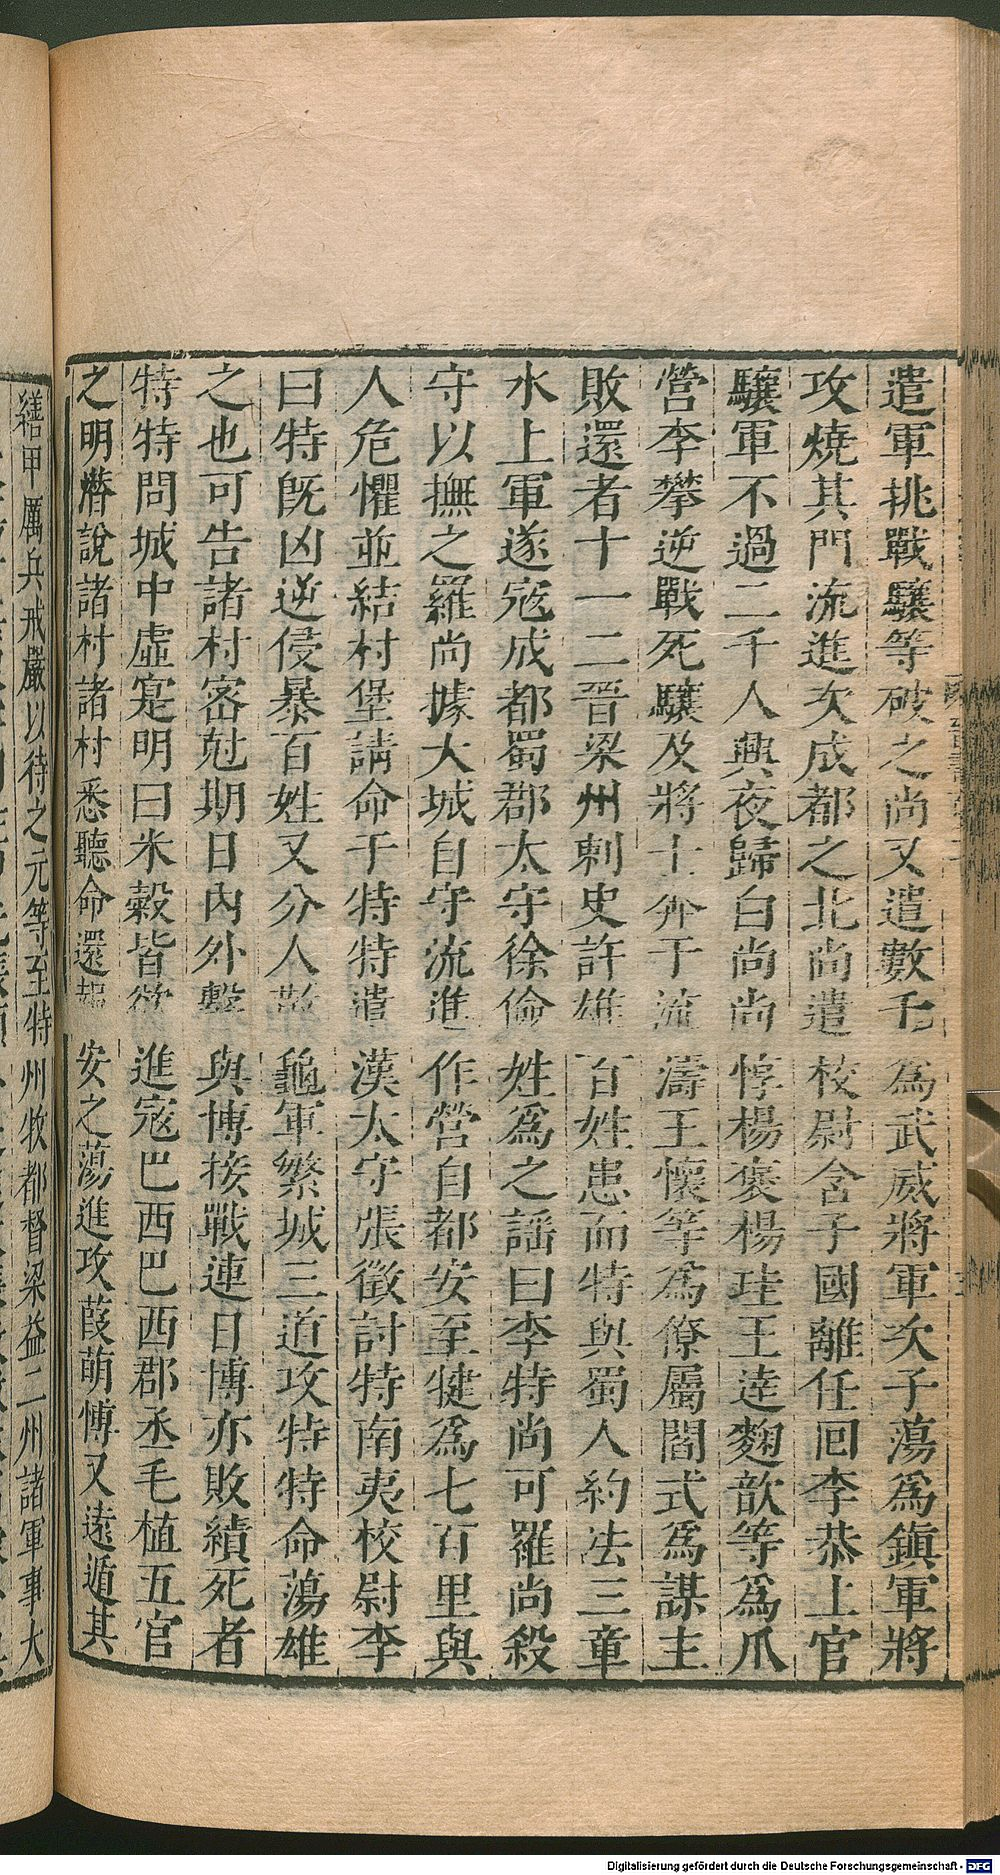 遣軍挑戰驤等破之尚又遣數千為武威將軍次子蕩為鎮軍將
攻燒其門流進次成都之北尚遣校尉含子國離任回李恭上官
驤軍不過二千人興夜歸白尚尚惇楊褒楊珪王逵麴歆等為爪
營李攀逆戰死驤及將士奔于流濤王懷等為僚屬閻式為謀主
敗還者十一二晉梁州刺史許雄百姓患而特與蜀人約法三章
水上軍遂寇成都蜀郡太守徐儉姓為之謡曰李特尚可羅尚殺
守以撫之羅尚據大城自守流進作營自都安至犍為七百里與
人危懼並結村堡請命于特特遣漢太守張徵討特南夷校尉李
曰特既凶逆侵暴百姓又分人散龜軍繁城三道攻特特命蕩雄
之也可告諸村密尅期日內外擊與博接戰連日博亦敗績死者
特特問城中虛寔明曰米穀皆欲進寇巴西巴西郡丞毛植五官
之明潛說諸村諸村悉聽命還報安之蕩進攻葭萌博又遠遁其
繕甲厲兵戒嚴以待之元等至特州牧都督梁益二州諸軍事大
Digitalisierung gefördert durch die Deutsche Forschungsgemeinschaft - DFG